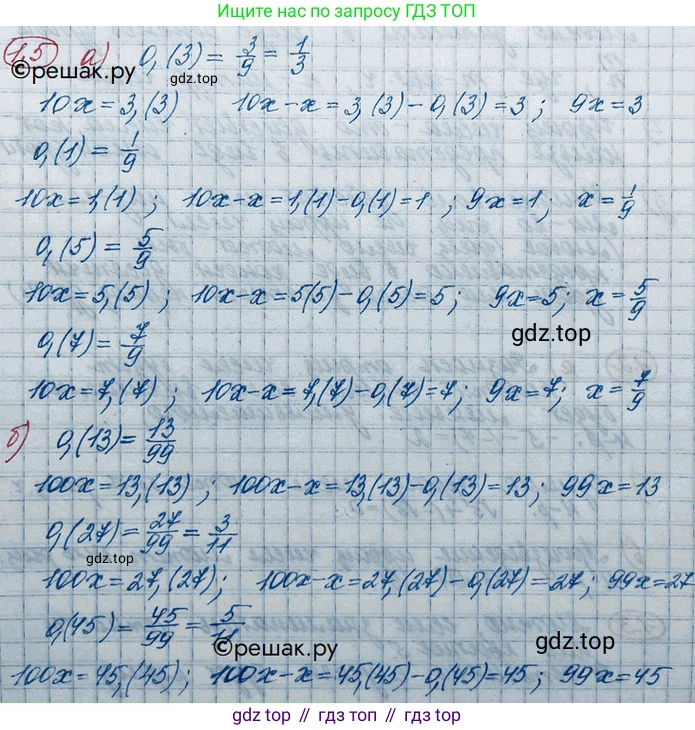 Ищи нас по запросу ГДЗ ТОП
1.5 а) 0,(3) = 3/9 = 1/3
©решак.ру
gdz.top
10x = 3,(3) 10x - x = 3,(3) - 0,(3) = 3 ; 9x = 3
0,(1) = 1/9
10x = 1,(1) ; 10x - x = 1,(1) - 0,(1) = 1 ; 9x = 1 ; x = 1/9
0,(5) = 5/9
10x = 5,(5) ; 10x - x = 5(5) - 0,(5) = 5 ; 9x = 5 ; x = 5/9
0,(7) = 7/9
gdz.top
10x = 7,(7) ; 10x - x = 7,(7) - 0,(7) = 7 ; 9x = 7 ; x = 7/9
б) 0,(13) = 13/99
100x = 13,(13) ; 100x - x = 13,(13) - 0,(13) = 13 ; 99x = 13
0,(27) = 27/99 = 3/11
gdz.top
100x = 27,(27) ; 100x - x = 27,(27) - 0,(27) = 27 ; 99x = 27
0,(45) = 45/99 = 5/11
©решак.ру
gdz.top
100x = 45,(45) ; 100x - x = 45,(45) - 0,(45) = 45 ; 99x = 45
gdz.top // гдз.топ // gdz.top